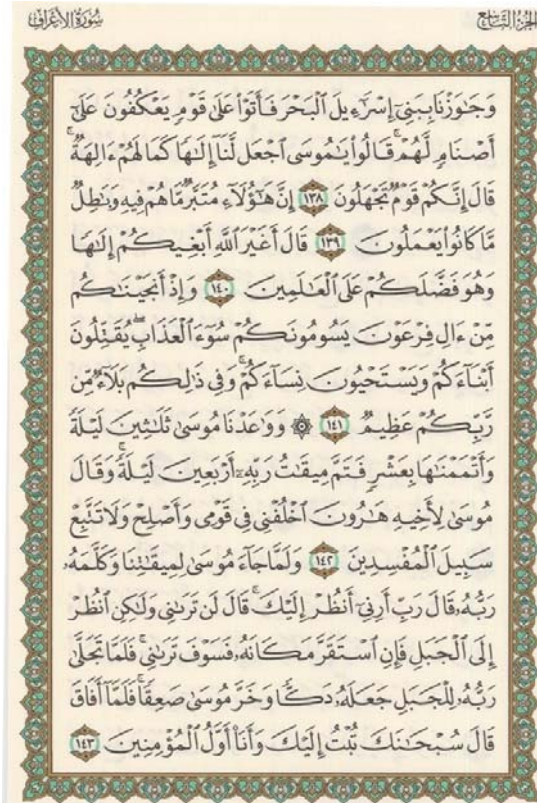 الجزء التاسع
سورة الأعراف
وَجَٰوَزْنَا بِبَنِىٓ إِسْرَٰٓءِيلَ ٱلْبَحْرَ فَأَتَوْا۟ عَلَىٰ قَوْمٍ يَعْكُفُونَ عَلَىٰٓ
أَصْنَامٍ لَّهُمْ ۚ قَالُوا۟ يَٰمُوسَى ٱجْعَل لَّنَآ إِلَٰهًا كَمَا لَهُمْ ءَالِهَةٌ ۚ
قَالَ إِنَّكُمْ قَوْمٌ تَجْهَلُونَ ١٣٨ إِنَّ هَٰٓؤُلَآءِ مُتَبَّرٌ مَّا هُمْ فِيهِ وَبَٰطِلٌ
مَّا كَانُوا۟ يَعْمَلُونَ ١٣٩ قَالَ أَغَيْرَ ٱللَّهِ أَبْغِيكُمْ إِلَٰهًا
وَهُوَ فَضَّلَكُمْ عَلَى ٱلْعَٰلَمِينَ ١٤٠ وَإِذْ أَنجَيْنَٰكُم
مِّنْ ءَالِ فِرْعَوْنَ يَسُومُونَكُمْ سُوٓءَ ٱلْعَذَابِ ۖ يُقَتِّلُونَ
أَبْنَآءَكُمْ وَيَسْتَحْيُونَ نِسَآءَكُمْ ۚ وَفِى ذَٰلِكُم بَلَآءٌ مِّن
رَّبِّكُمْ عَظِيمٌ ١٤١ ۞ وَوَٰعَدْنَا مُوسَىٰ ثَلَٰثِينَ لَيْلَةً
وَأَتْمَمْنَٰهَا بِعَشْرٍ فَتَمَّ مِيقَٰتُ رَبِّهِۦٓ أَرْبَعِينَ لَيْلَةً ۚ وَقَالَ
مُوسَىٰ لِأَخِيهِ هَٰرُونَ ٱخْلُفْنِى فِى قَوْمِى وَأَصْلِحْ وَلَا تَتَّبِعْ
سَبِيلَ ٱلْمُفْسِدِينَ ١٤٢ وَلَمَّا جَآءَ مُوسَىٰ لِمِيقَٰتِنَا وَكَلَّمَهُۥ
رَبُّهُۥ قَالَ رَبِّ أَرِنِىٓ أَنظُرْ إِلَيْكَ ۚ قَالَ لَن تَرَىٰنِى وَلَٰكِنِ ٱنظُرْ
إِلَى ٱلْجَبَلِ فَإِنِ ٱسْتَقَرَّ مَكَانَهُۥ فَسَوْفَ تَرَىٰنِى ۚ فَلَمَّا تَجَلَّىٰ
رَبُّهُۥ لِلْجَبَلِ جَعَلَهُۥ دَكًّا وَخَرَّ مُوسَىٰ صَعِقًا ۚ فَلَمَّآ أَفَاقَ
قَالَ سُبْحَٰنَكَ تُبْتُ إِلَيْكَ وَأَنَا۠ أَوَّلُ ٱلْمُؤْمِنِينَ ١٤٣